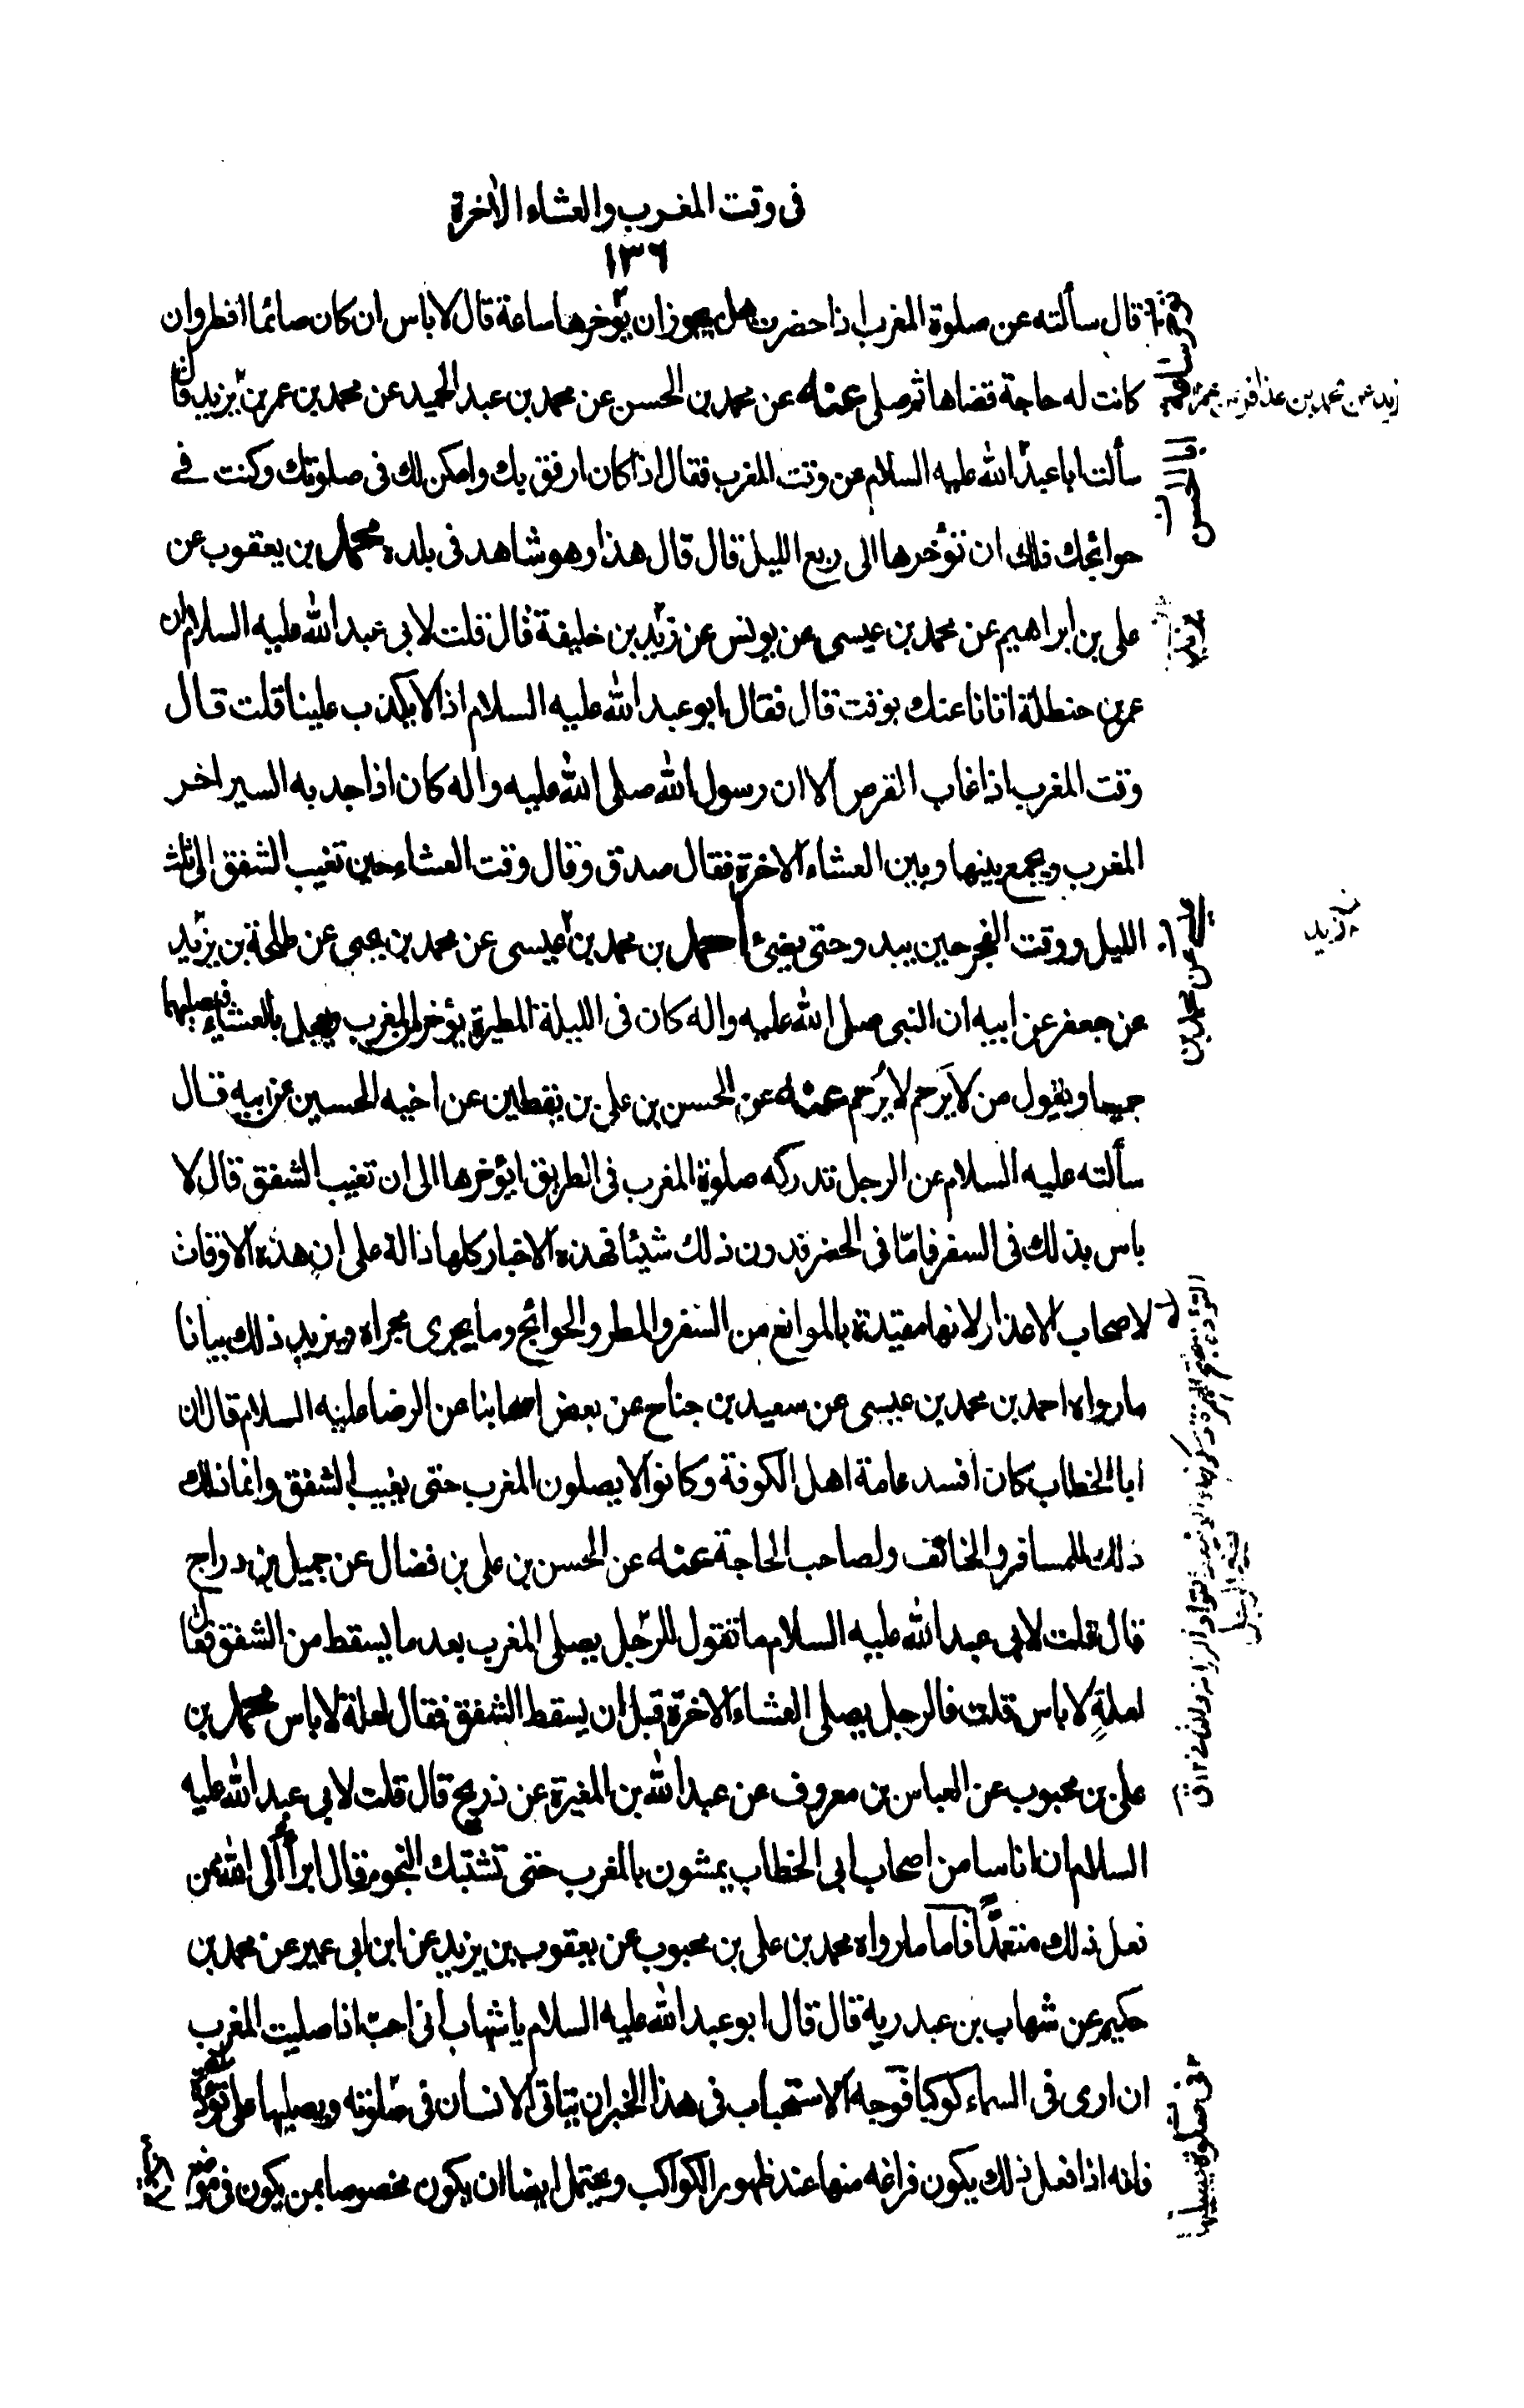 فى وقت المغرب والعشاء الاخرة
١٣٦
قال سألته عن صلوة المغرب اذا حضرت هل يجوز ان يؤخرها ساعة قال لا باس ان كان صائما افطر وان
كانت له حاجة قضاها ثم صلى عنه عن محمد بن الحسن عن محمد بن عبد الحميد عن محمد بن عمر بن يزيد قال
سألت ابا عبد الله عليه السلام عن وقت المغرب فقال اذا كان ارفق بك وامكن لك فى صلوتك وكنت فے
حوائجك فلك ان تؤخرها الى ربع الليل قال قال هذا وهو شاهد فى بلده محمد بن يعقوب عن
على بن ابراهيم عن محمد بن عيسى عن يونس عن زيد بن خليفة قال قلت لابى عبد الله عليه السلام ان
عمر بن حنظلة اتانا عنك بوقت قال فقال ابو عبد الله عليه السلام اذا لا يكذب علينا قلت قال
وقت المغرب اذا غاب القرص الا ان رسول الله صلى الله عليه واله كان اذا جد به السير اخر
المغرب ويجمع بينها وبين العشاء الاخرة فقال صدق وقال وقت العشاء حين تغيب الشفق الى ثلث
الليل ووقت الفجر حين يبدو حتى يضئ احمد بن محمد بن عيسى عن محمد بن يحيى عن طلحة بن يزيد
عن جعفر عن ابيه ان النبى صلى الله عليه واله كان فى الليلة المطيرة يؤخر المغرب ويعجل بالعشاء فيصليهما
جميعا ويقول من لا يَرحم لا يُرحم عنه عن الحسن بن على بن يقطين عن اخيه الحسين عن ابيه قال
سألته عليه السلام عن الرجل تدركه صلوة المغرب فى الطريق ايؤخرها الى ان تغيب الشفق قال لا
باس بذلك فى السفر فامّا فى الحضر فدون ذلك شيئا فهذه الاخبار كلها دالة على ان هذه الاوقات
لاصحاب الاعذار لانها مقيدة بالموانع من السفر والمطر والحوائج وما يجرى مجراه ويزيد ذلك بيانا
ما رواه احمد بن محمد بن عيسى عن سعيد بن جناح عن بعض اصحابنا عن الرضا عليه السلام قال ان
ابا الخطاب كان افسد عامة اهل الكوفة وكانوا لا يصلون المغرب حتى يغيب الشفق وانما ذلك
ذلك للمسافر والخائف ولصاحب الحاجة عنه عن الحسن بن على بن فضال عن جميل بن دراج
قال قلت لابى عبد الله عليه السلام ما تقول للرّجل يصلى المغرب بعد ما يسقط من الشفق فقال
لعلةٍ لا باس قلت فالرجل يصلى العشاء الاخرة قبل ان يسقط الشفق فقال لعلة لا باس محمد بن
على بن محبوب عن العباس بن معروف عن عبد الله بن المغيرة عن ذريح قال قلت لابى عبد الله عليه
السلام ان اناسا من اصحاب ابى الخطاب يمسون بالمغرب حتى تشتبك النجوم قال ابرأ الى الله ممن
فعل ذلك متعمّدًا فاما ما رواه محمد بن على بن محبوب عن يعقوب بن يزيد عن ابن ابى عمير عن محمد بن
حكيم عن شهاب بن عبد ربه قال قال ابو عبد الله عليه السلام يا شهاب انى احبّ اذا صليت المغرب
ان ارى فى السماء كوكبا فوجه الاستحباب فى هذا الخبر ان يتأتى الانسان فى صلوته ويصليها على تؤدة
فانه اذا فعل ذلك يكون فراغه منها عند ظهور الكواكب ويحتمل ايضا ان يكون مخصوصا بمن يكون فى موضع